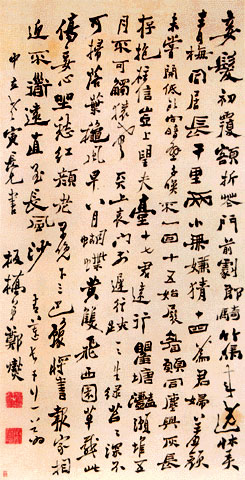 妾髮初覆額折花門前劇郎騎竹馬來遶牀弄
青梅同居長干里兩小無嫌猜十四為君婦羞顏
未嘗開低頭向暗壁千喚不一回十五始展眉願同塵與灰長
存抱柱信豈上望夫臺十六君遠行瞿塘灩澦堆五
月不可觸猿聲天上哀門前遲行跡一一生綠苔苔深不
可掃落葉秋風早八月蝴蝶黃雙飛西園草感此
傷妾心坐愁紅顏老早晚下三巴豫將書報家相
迎不道遠直至長風沙
板橋鄭燮